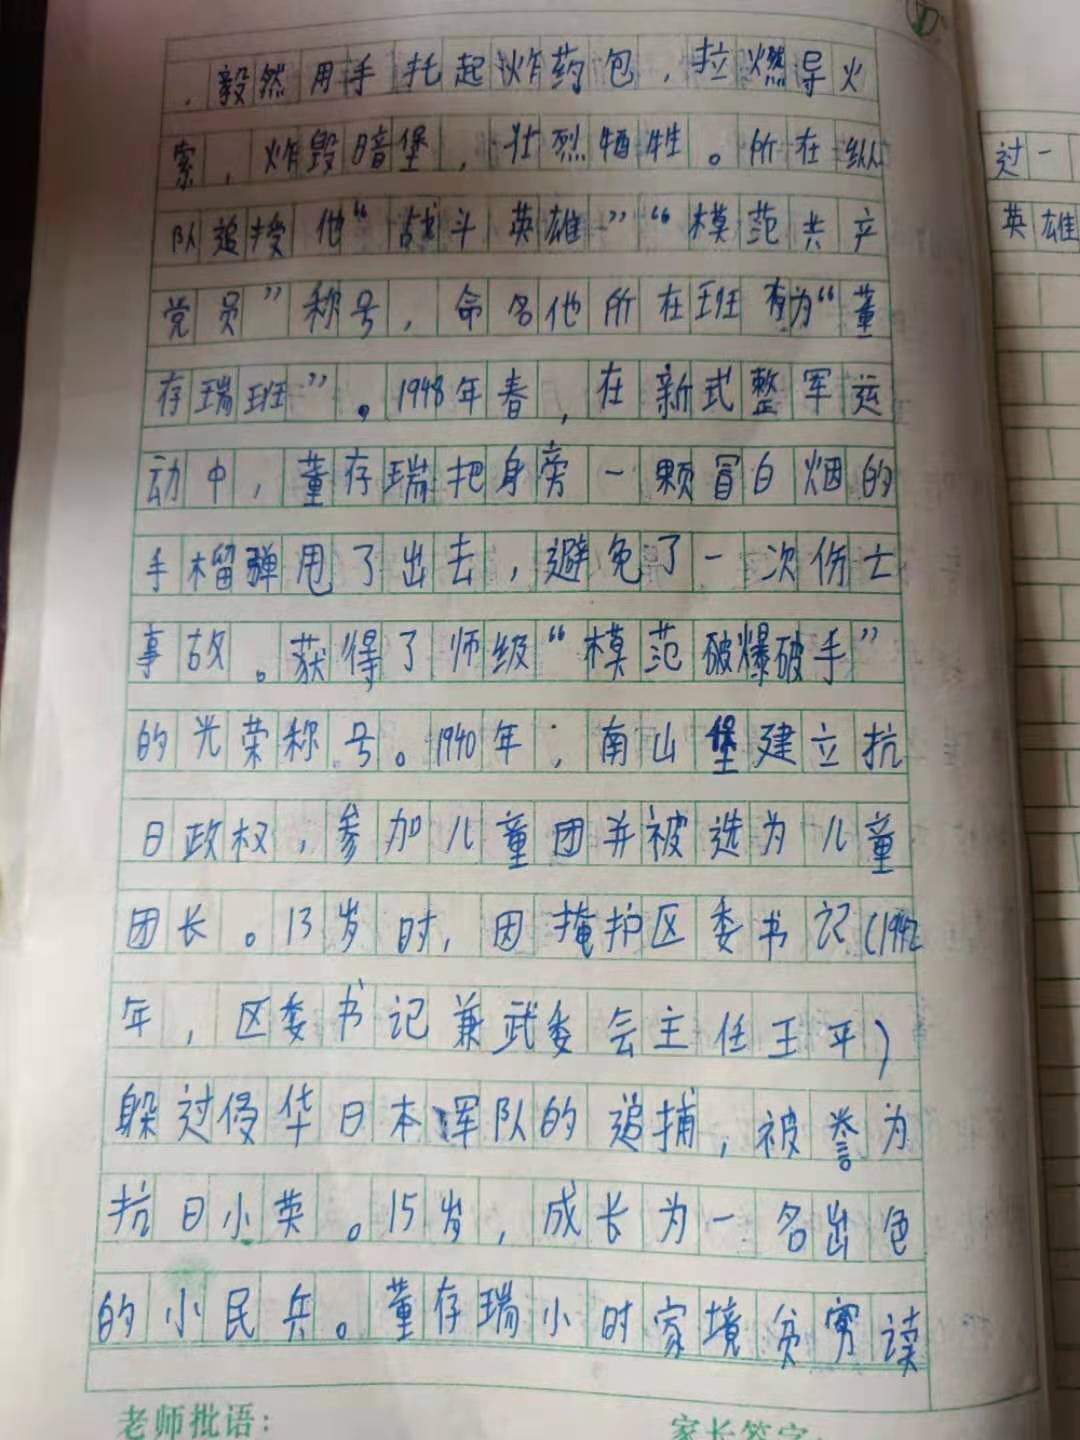 ，毅然用手托起炸药包，拉燃导火
索，炸毁暗堡，壮烈牺牲。所在纵
队追授他“战斗英雄”“模范共产
党员”称号，命名他所在班为“董
存瑞班”。1948年春，在新式整军运
动中，董存瑞把身旁一颗冒白烟的
手榴弹甩了出去，避免了一次伤亡
事故。获得了师级“模范破爆破手”
的光荣称号。1940年，南山堡建立抗
日政权，参加儿童团并被选为儿童
团长。13岁时，因掩护区委书记（1942
年，区委书记兼武委会主任王平）
躲过侵华日本军队的追捕，被誉为
抗日小英。15岁，成长为一名出色
的小民兵。董存瑞小时家境贫穷读
老师批语：
家长签字：
过一
英雄